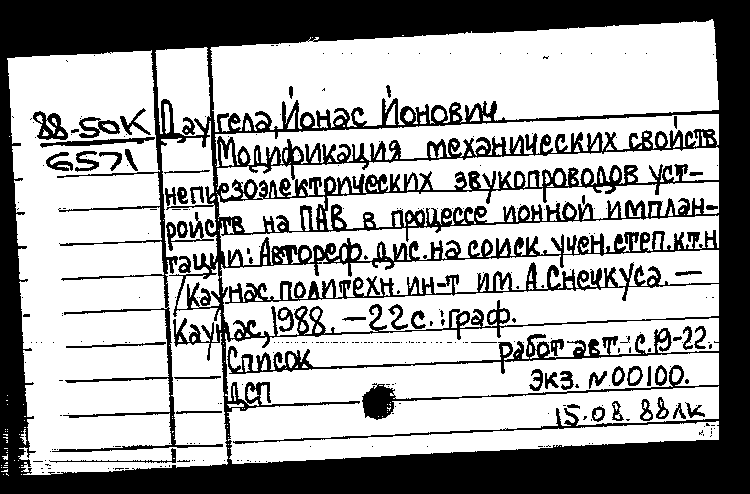 88-50К Даугела, Йонас Йонович.
6571
Модификация механических свойств
непьезоэлектрических звукопроводов уст-
ройств на ПАВ в процессе ионной имплан-
тации: Автореф. дис. на соиск. учен. степ. к.т.н
/Каунас. политехн. ин-т им. А. Снечкуса. —
Каунас, 1988. — 22 с.: граф.
Список работ авт.: с. 19-22.
ДСП Экз. N 00100.
15.08.88 лк